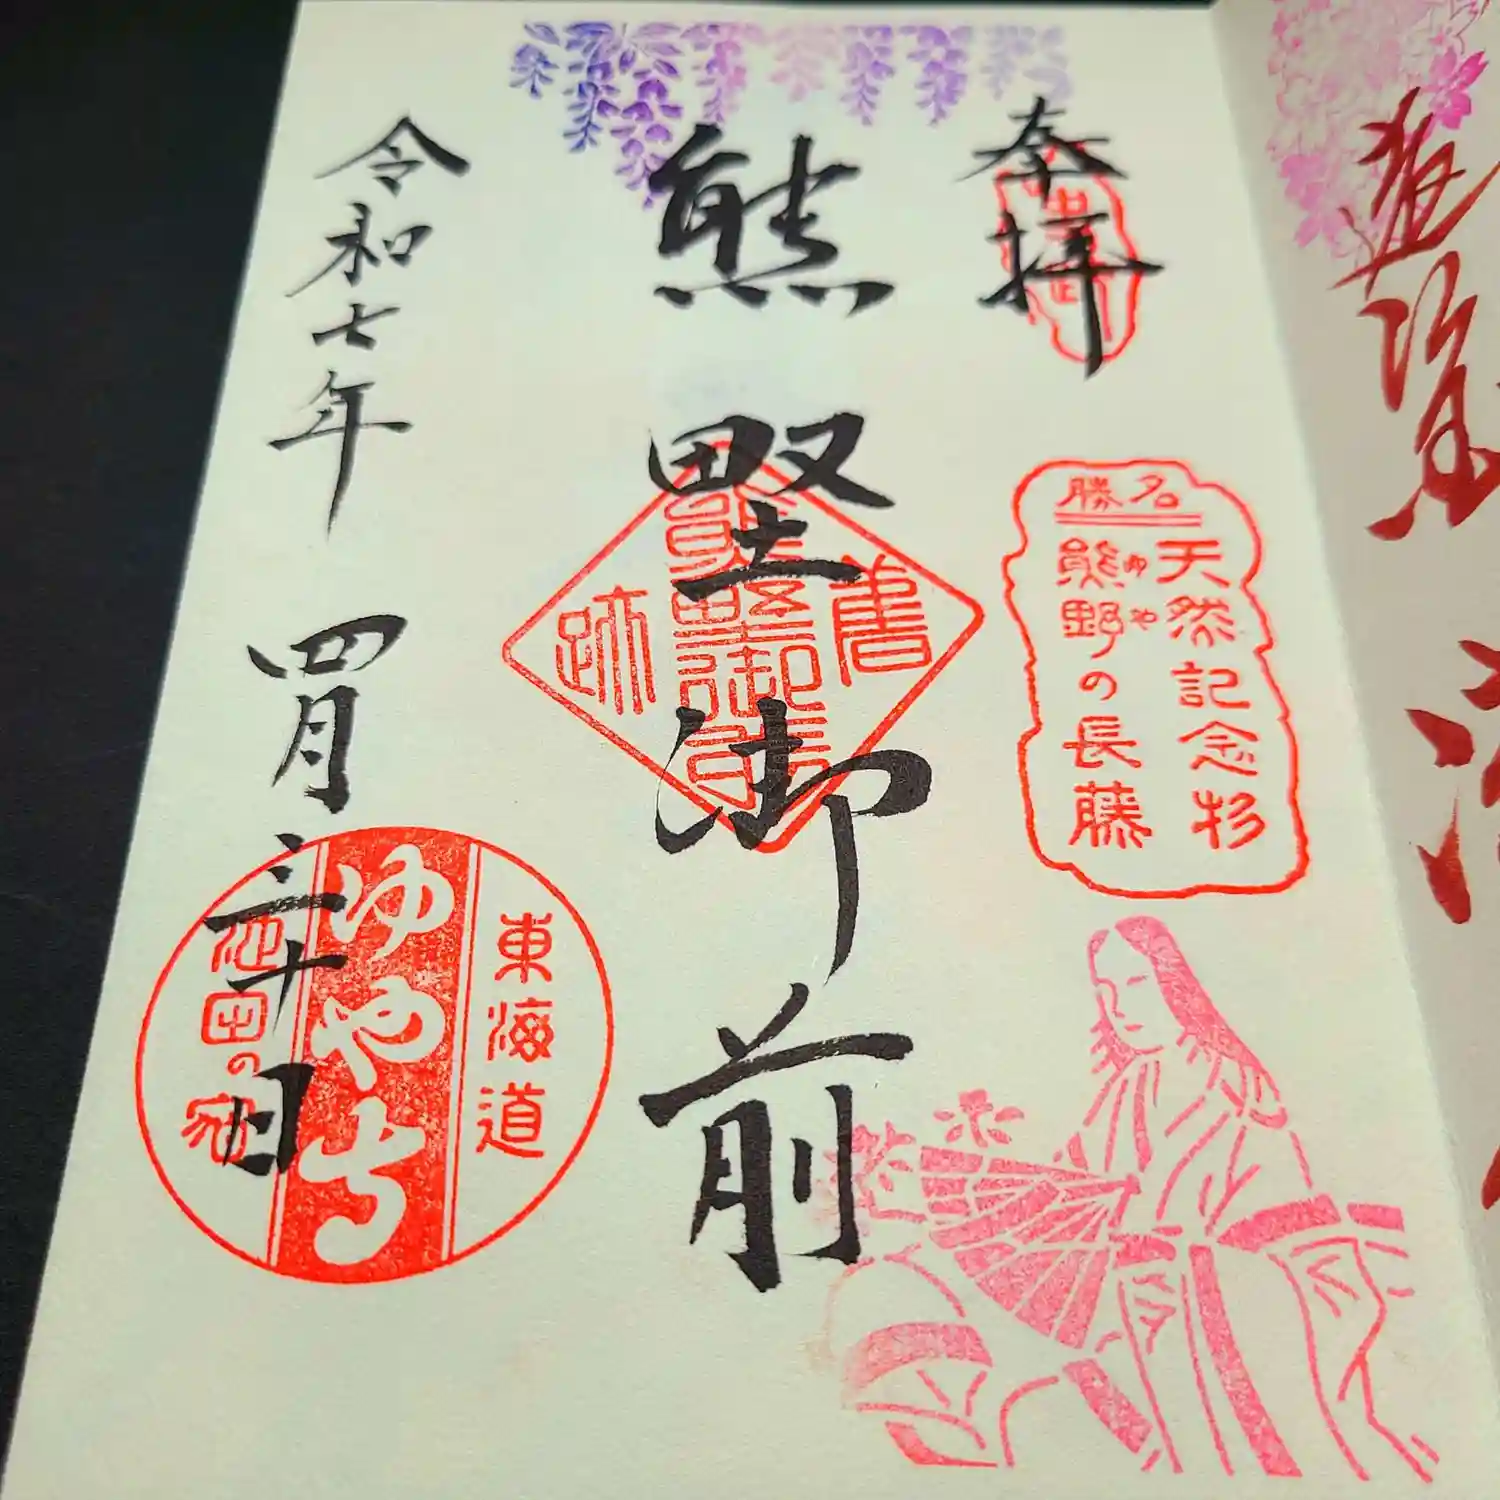 奉拝
名勝
天然記念杉
熊野の長藤
ゆや
熊埜御前
書
熊埜御前
跡
令和七年 四月三十日
東海道
ゆやさち
池田の宿